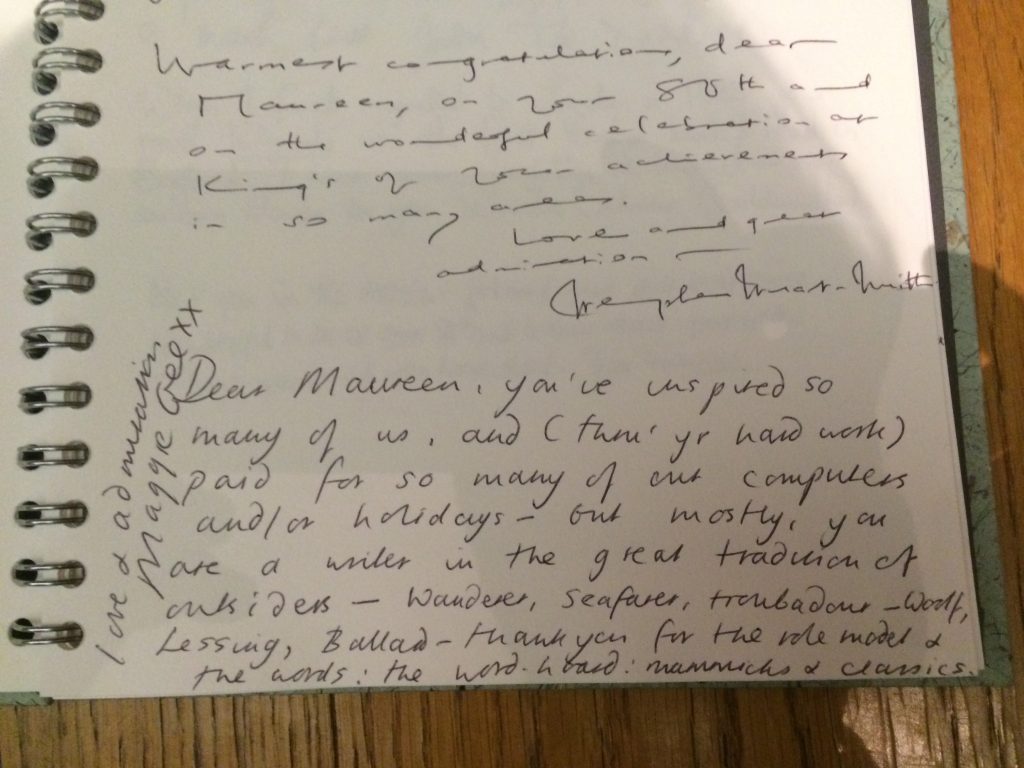 Warmest congratulations, dear
Maureen, on your 88th and
on the wonderful celebration at
King's of your achievements
in so many areas.
Love and great
admiration —
Dear Maureen, you've inspired so
many of us, and (thro' yr hard work)
paid for so many of our computers
and/or holidays – but mostly, you
are a writer in the great tradition of
outsiders – Wanderer, Seafarer, troubadour – Woolf,
Lessing, Ballad – thank you for the role model &
the words: the word-hoard: &  classics.
love & admiration
Maggie Gee xx